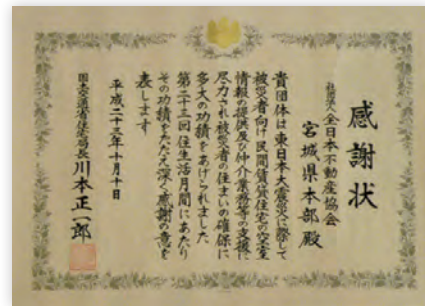 感謝状
社団法人全日本不動産協会
宮城県本部殿
貴団体は東日本大震災に際して
被災者向け民間賃貸住宅の空室
情報の提供及び仲介業務等の支援に
尽力され被災者の住まいの確保に
多大の功績をあげられました
第二十三回住生活月間にあたり
その功績をたたえ深く感謝の意を
表します
平成二十三年十月十日
国土交通省住宅局長川本正一郎